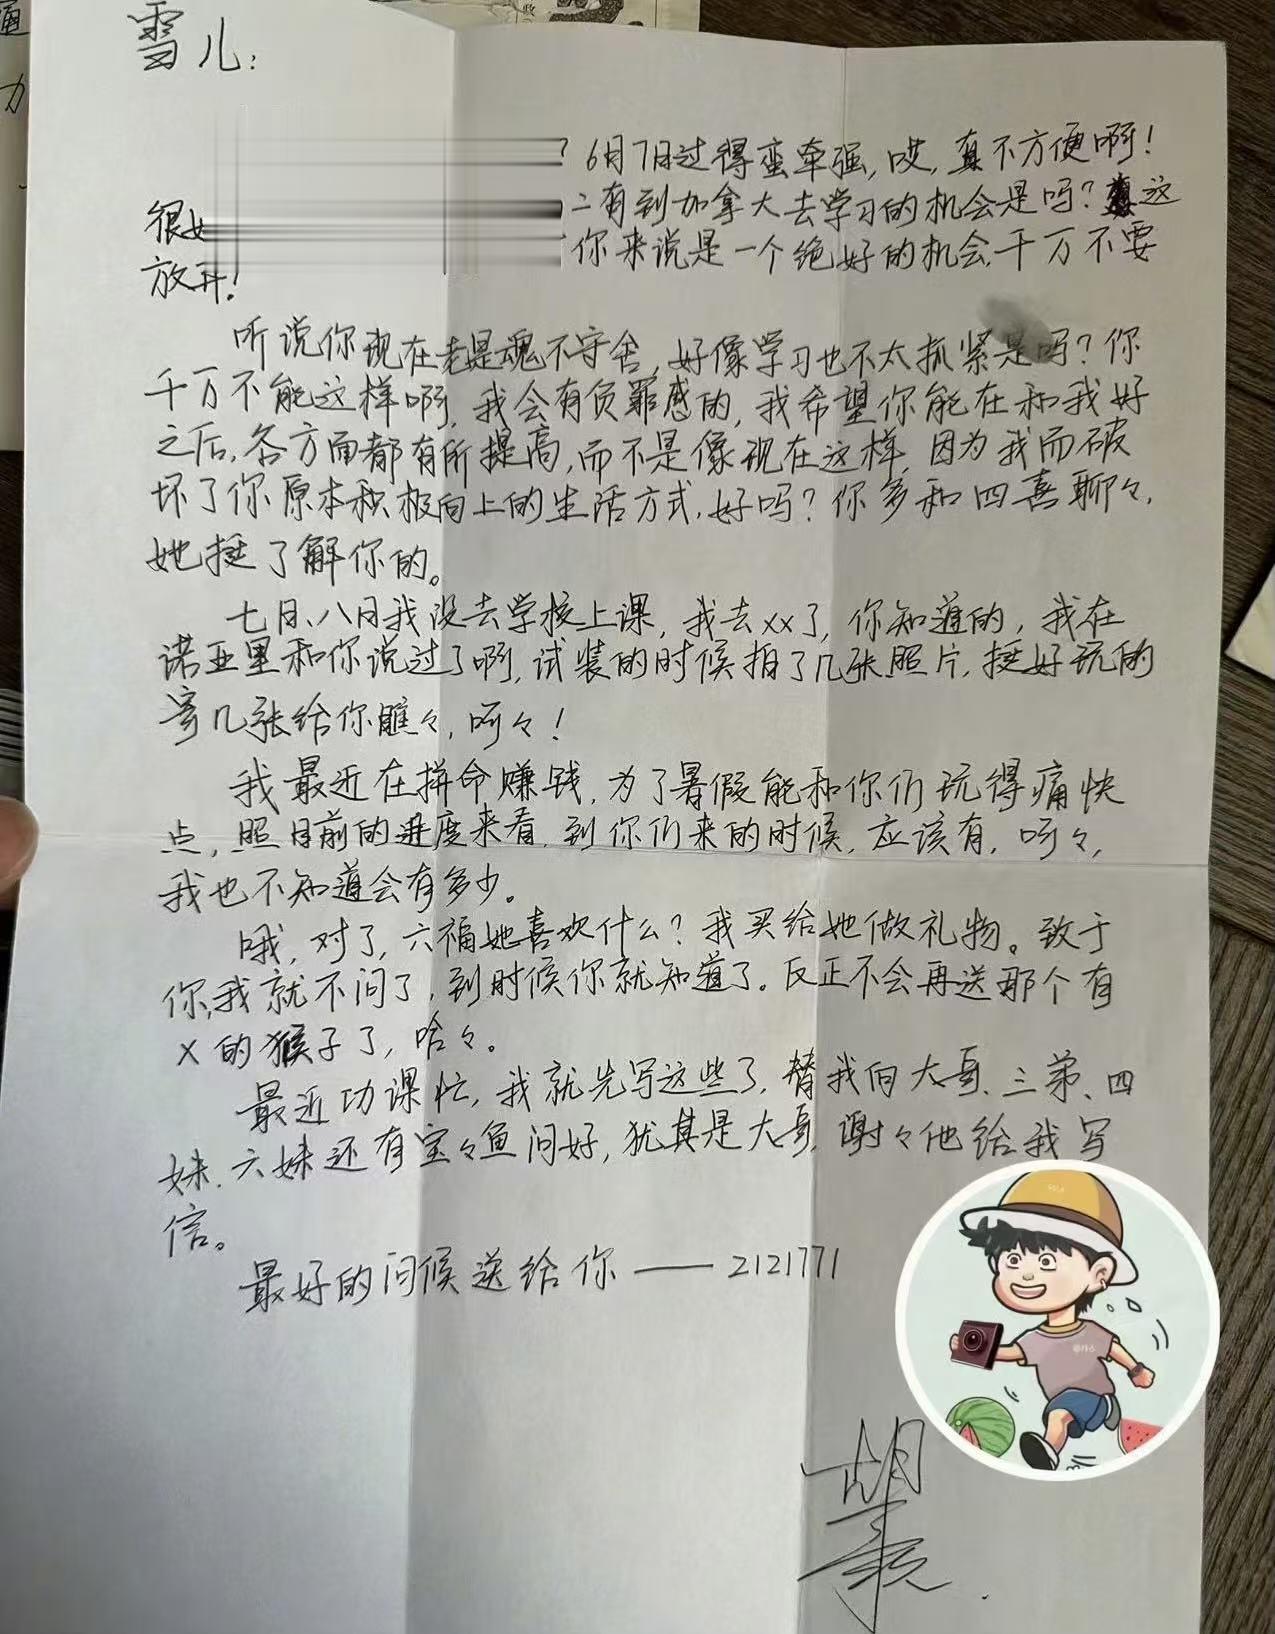 雪儿:
6月7日过得蛮牵强,哎,真不方便啊!
很
二有到加拿大去学习的机会是吗?这
你来说是一个绝好的机会,千万不要
放弃!
听说你现在老是魂不守舍,好像学习也不太抓紧是吗?你
千万不能这样啊,我会有负罪感的,我希望你能在和我好
之后,各方面都有所提高,而不是像现在这样,因为我而破
坏了你原本积极向上的生活方式,好吗?你多和四喜聊々,
她挺了解你的。
七月、八月我没去学校上课,我去xx了,你知道的,我在
诺亚里和你说过了啊,试装的时候拍了几张照片,挺好玩的
寄几张给你瞧々,呵々!
我最近在拼命赚钱,为了暑假能和你们玩得痛快
点,照目前的进度来看,到你们来的时候,应该有,呵々,
我也不知道会有多少。
哦,对了,六福她喜欢什么?我买给她做礼物。致于
你,我就不问了,到时候你就知道了。反正不会再送那个有
X的猴子了,哈々。
最近功课忙,我就先写这些了,替我向大哥、三弟、四
妹、六妹还有宝々鱼问好,犹其是大哥,谢々他给我写
信。
最好的问候送给你——2121771
胡